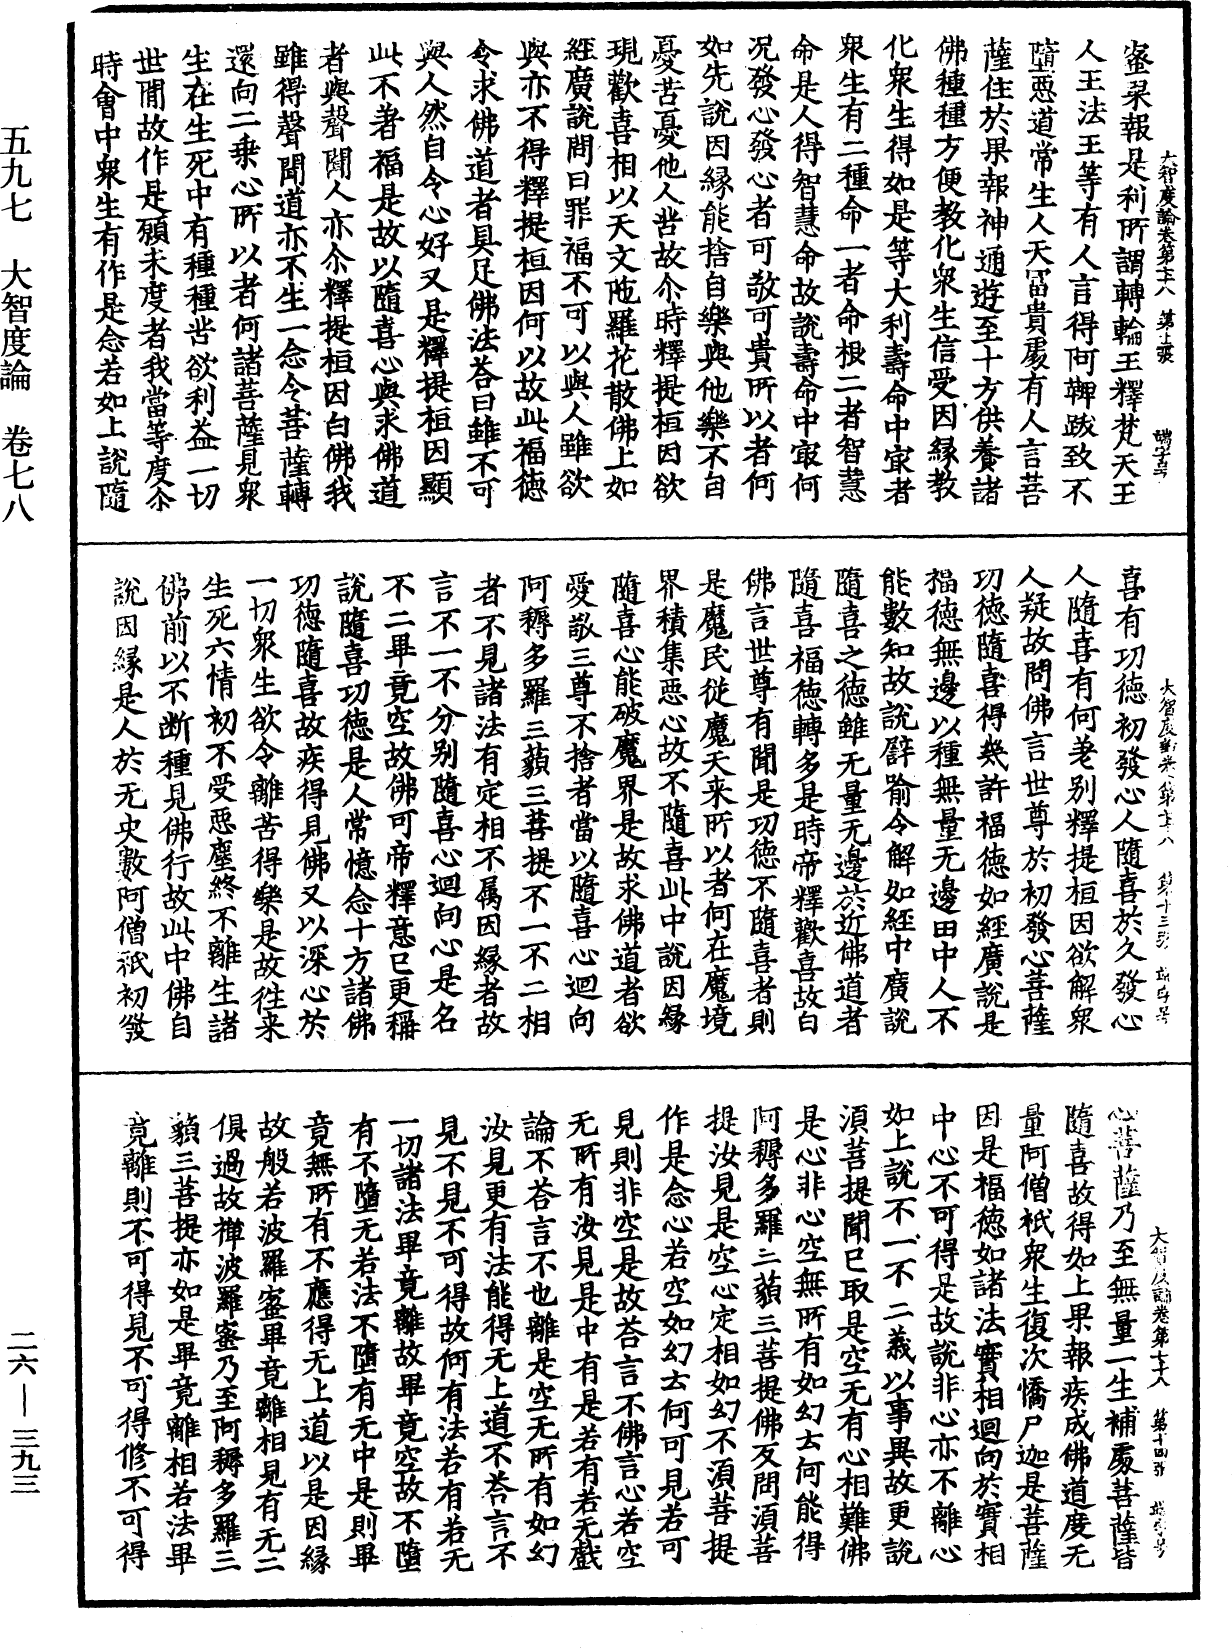 大智度論卷第七十八
蜜果報是利所謂轉輪王釋梵天王
人王法王等有人言得阿鞞跋致不
墮惡道常生人天冨貴處有人言菩
薩住於果報神通遊至十方供養諸
佛種種方便教化衆生信受因緣教
化衆生得如是等大利壽命中㝡者
衆生有二種命一者命根二者智慧
命是人得智慧命故說壽命中㝡何
况發心發心者可敬可貴所以者何
如先說因緣能捨自樂與他樂不自
憂苦憂他人苦故尒時釋提桓因欲
現歡喜相以天文陁羅花散佛上如
經廣說問曰罪福不可以與人雖欲
與亦不得釋提桓因何以故此福德
令求佛道者具足佛法荅曰雖不可
與人然自令心好又是釋提桓因顯
此不著福是故以隨喜心與求佛道
者與聲聞人亦尒釋提桓因白佛我
雖得聲聞道亦不生一念令菩薩轉
還向二乗心所以者何諸菩薩見衆
生在生死中有種種苦欲利益一切
世間故作是願未度者我當等度尒
時會中衆生有作是念若如上說隨
喜有功德初發心人隨喜於久發心
人隨喜有何差别釋提桓因欲解衆
人疑故問佛言世尊於初發心菩薩
功德隨喜得幾許福德如經廣說是
福德無邊以種無量无邊田中人不
能數知故說譬喻令解如經中廣說
隨喜之德雖无量无邊於近佛道者
隨喜福德轉多是時帝釋歡喜故白
佛言世尊有聞是功德不隨喜者則
是魔民從魔天来所以者何在魔境
界積集惡心故不隨喜此中說因緣
隨喜心能破魔界是故求佛道者欲
愛敬三尊不捨者當以隨喜心迴向
阿耨多羅三藐三菩提不一不二相
者不見諸法有定相不属因緣者故
言不一不分别隨喜心迴向心是名
不二畢竟空故佛可帝釋意已更稱
說隨喜功德是人常憶念十方諸佛
功德隨喜故疾得見佛又以深心於
一切衆生欲令離苦得樂是故往来
生死六情初不受惡塵終不離生諸
佛前以不断種見佛行故此中佛自
說因緣是人於无央數阿僧祇初發
心菩薩乃至無量一生補處菩薩皆
隨喜故得如上果報疾成佛道度无
量阿僧祇衆生復次憍尸迦是菩薩
因是福德如諸法實相迴向於實相
中心不可得是故說非心亦不離心
如上說不一不二義以事異故更說
須菩提聞已取是空无有心相難佛
是心非心空無所有如幻云何能得
阿耨多羅三藐三菩提佛反問須菩
提汝見是空心定相如幻不須菩提
作是念心若空如幻云何可見若可
見則非空是故荅言不佛言心若空
无所有汝見是中有是若有若无戲
論不荅言不也離是空无所有如幻
汝見更有法能得无上道不荅言不
見不見不可得故何有法若有若无
一切諸法畢竟離故畢竟空故不墮
有不墮无若法不墮有无中是則畢
竟無所有不應得无上道以是因緣
故般若波羅蜜畢竟離相見有无二
俱過故禅波羅蜜乃至阿耨多羅三
藐三菩提亦如是畢竟離相若法畢
竟離則不可得見不可得修不可得
五九七　大智度論　卷七八
二六—三九三